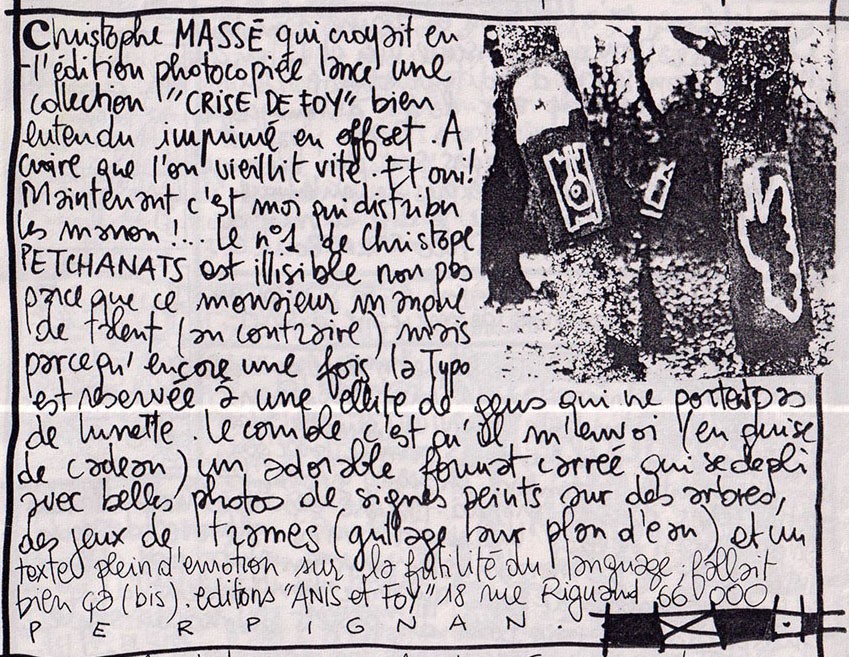 Christophe MASSÉ qui croyait en
l'édition photocopiée lance une
collection "CRISE DE FOY" bien
entendu imprimé en offset. A
croire que l'on vieillit vite. Et oui!
Maintenant c'est moi qui distribu
les marron !... Le n°1 de Christope
PETCHANATS est illisible non pas
parce que ce monsieur manque
de talent (au contraire) mais
parcequ' encore une fois la Typo
est reservée à une élite de gens qui ne portent pas
de lunette. Le comble c'est qu'il m'envoi (en guise
de cadeau) un adorable format carrée qui se depli
avec belles photos de signes peints sur des arbres,
des jeux de trames (grillage sur plan d'eau) et un
texte plein d'emotion sur la futilité du language, fallait
bien ça (bis). editons "ANIS et FOY" 18 rue Rigaud 66 000
PERPIGNAN.